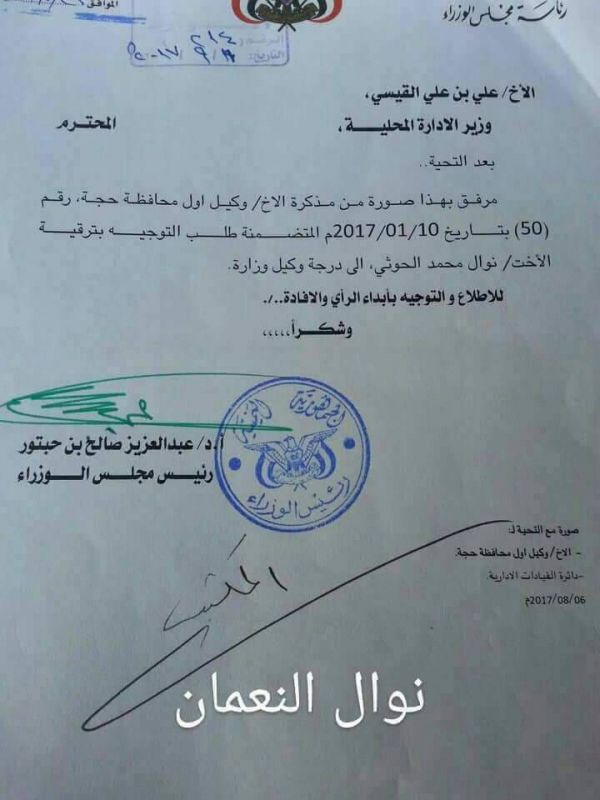 رئاسة مجلس الوزراء
الموافق
الرقم: ٢١٤
التاريخ:
الأخ/ علي بن علي القيسي،
وزير الادارة المحلية، المحترم
بعد التحية..
مرفق بهذا صورة من مذكرة الاخ/ وكيل اول محافظة حجة، رقم
(50) بتاريخ 2017/01/10م المتضمنة طلب التوجيه بترقية
الأخت/ نوال محمد الحوثي، الى درجة وكيل وزارة.
للاطلاع و التوجيه بأبداء الرأي والافادة../.
وشكراً،،،،،
أ.د/ عبدالعزيز صالح بن حبتور
رئيس مجلس الوزراء
الجمهورية اليمنية
رئيس الوزراء
صورة مع التحية لـ:
- الاخ/ وكيل اول محافظة حجة.
-دائرة القيادات الادارية.
2017/08/06م
نوال النعمان